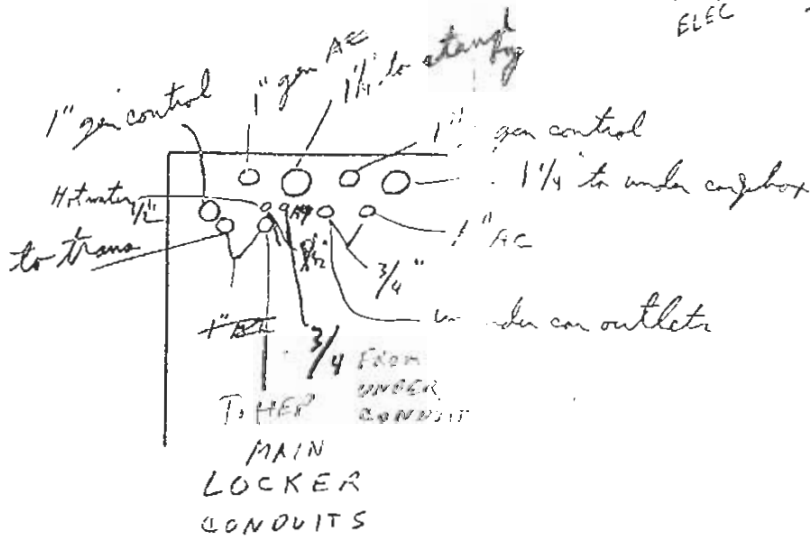 ELEC
1" gen AC
1 1/4 to stand by
1" gen control
1" gen control
1 1/4 to under car box
Hot water 1/2"
to trans
1" AC
3/4"
under car outlets
3/4 FROM UNDER CONDUIT
To HEP
MAIN
LOCKER
CONDUITS